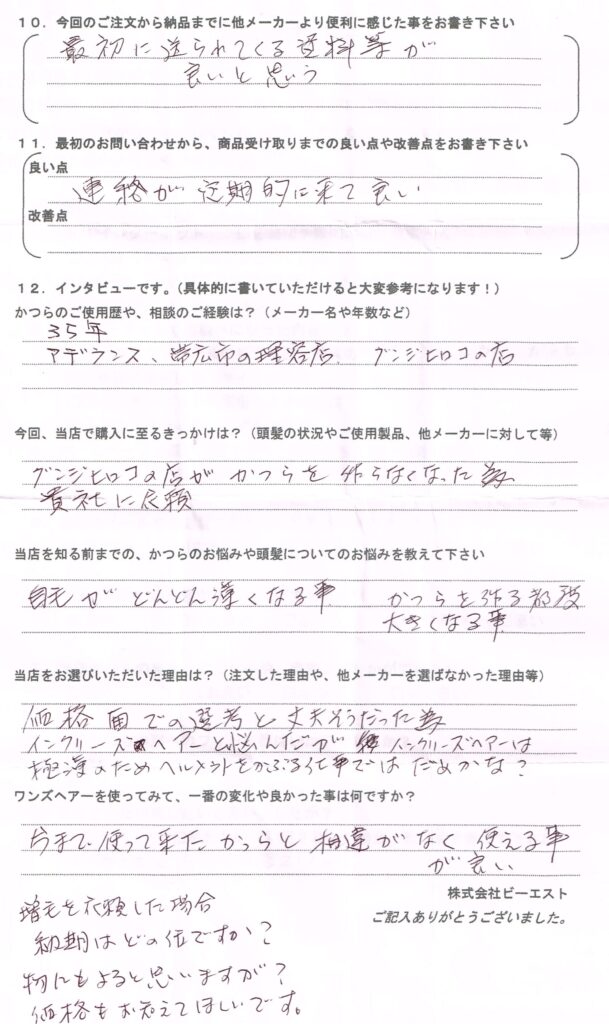 １０．今回のご注文から納品までに他メーカーより便利に感じた事をお書き下さい
最初に送られてくる資料等が
良いと思う
１１．最初のお問い合わせから、商品受け取りまでの良い点や改善点をお書き下さい
良い点
連絡が定期的に来て良い
改善点
１２．インタビューです。（具体的に書いていただけると大変参考になります！）
かつらのご使用歴や、相談のご経験は？（メーカー名や年数など）
35年
アデランス、帯広市の理容店、グンジヒロコの店
今回、当店で購入に至るきっかけは？（頭髪の状況やご使用製品、他メーカーに対して等）
グンジヒロコの店がかつらを作らなくなった為
貴社に依頼
当店を知る前までの、かつらのお悩みや頭髪についてのお悩みを教えて下さい
自毛がどんどん薄くなる事　かつらを作る都度
大きくなる事
当店をお選びいただいた理由は？（注文した理由や、他メーカーを選ばなかった理由等）
価格面での選考と丈夫そうだった為
インクリーズヘアーと悩んだが インクリーズヘアーは
極薄のためヘルメットをかぶる仕事ではだめかな？
ワンズヘアーを使ってみて、一番の変化や良かった事は何ですか？
今まで使って来たかつらと相違がなく使える事
が良い
株式会社ビーエスト
ご記入ありがとうございました。
増毛を依頼した場合
納期はどの位ですか？
物にもよると思いますが？
価格もお知えてほしいです。